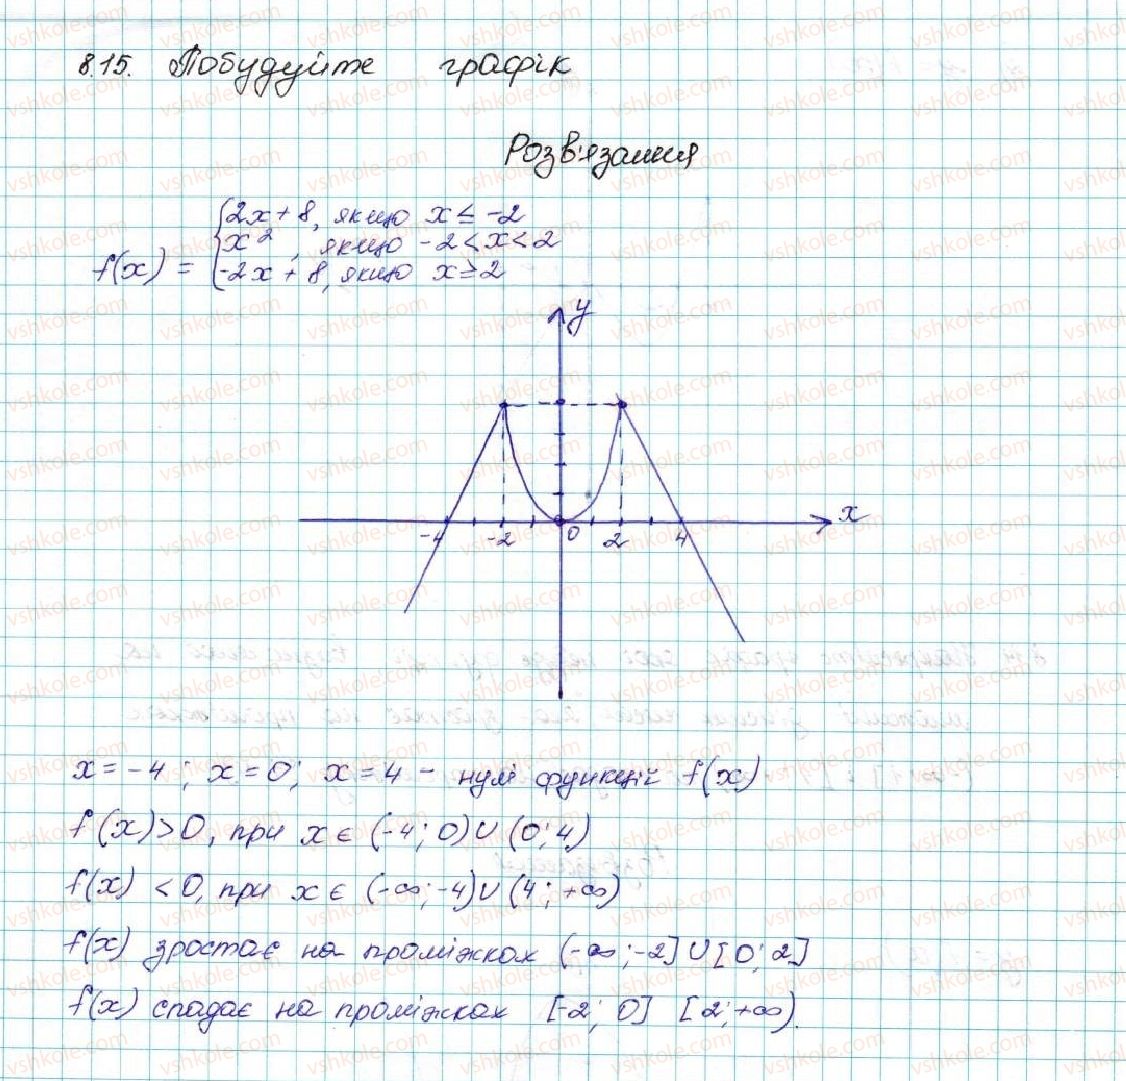 8.15. Побудуйте графік
Розв'язання
f(x) = { 2x + 8, якщо x ≤ -2
x², якщо -2 < x < 2
-2x + 8, якщо x ≥ 2
y
x
-4 -2 0 2 4
x = -4; x = 0; x = 4 - нулі функції f(x)
f(x) > 0, при x ∈ (-4; 0) ∪ (0; 4)
f(x) < 0, при x ∈ (-∞; -4) ∪ (4; +∞)
f(x) зростає на проміжках (-∞; -2] ∪ [0; 2]
f(x) спадає на проміжках [-2; 0] [2; +∞).
vshkole.com